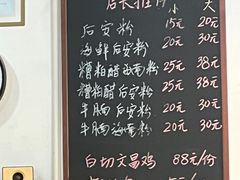 店长推荐
小 大
后安粉 15元 20元
海鲜后安粉 20元 30元
糟粕醋海南粉 25元 38元
糟粕醋后安粉 25元 38元
牛腩后安粉 20元 30元
牛腩海南粉 20元 30元
白切文昌鸡 88元/份